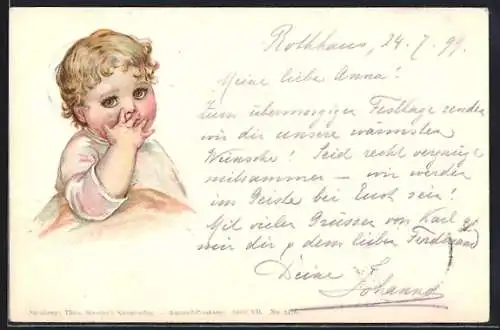 Rothhaus, 24.7.99.
Meine liebe Anna!
Zum übermorgigen Festtage senden
wir dir unsere wärmsten
Wünsche! Seid recht vergnügt
mitsammen - wir werden
im Geiste bei Euch sein!
Mit vielen Grüssen von Karl &
mir dir & dem lieben Ferdinand
Deine
Johanna
Nürnberg: Theo. Serie VII. No.